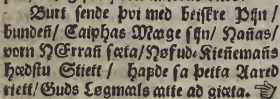 Burt sende þvi med beiskre Pijn /
bundeñ / Caiphas Mærge sijn / Nañas /
vorn HErrañ sæta / Høfud-Kieñemañs
hædstu Stiett / hafde sa þetta Aared
riett / Guds Løgmæls ætte ad giæta.